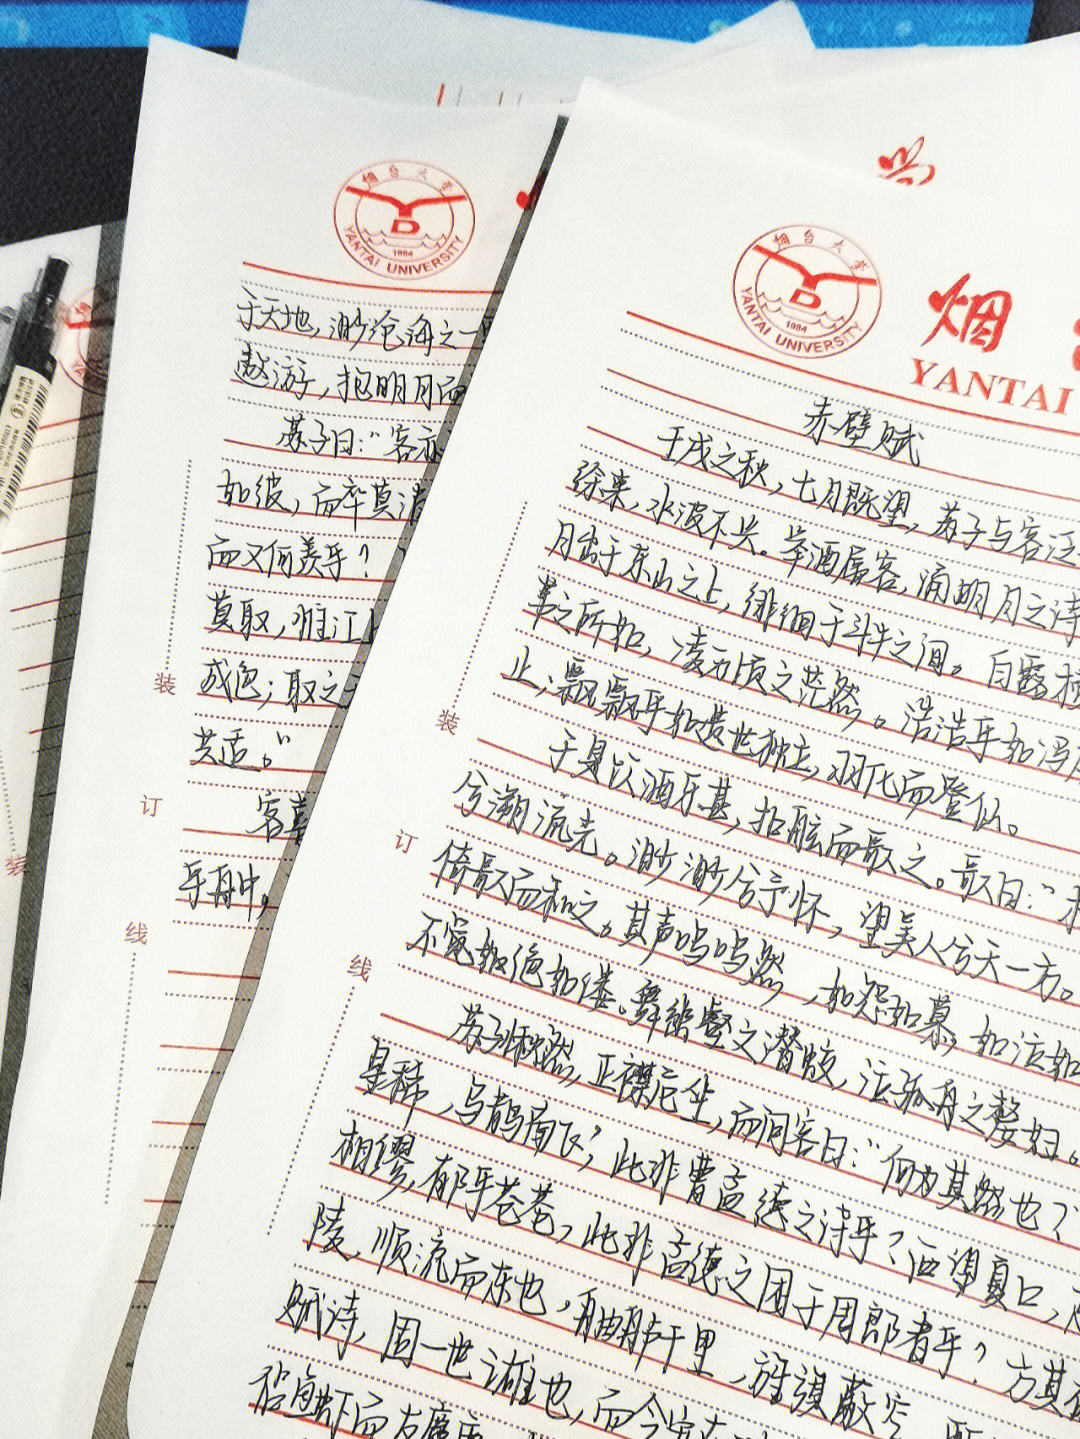 烟台大学
YANTAI UNIVERSITY
1984
于天地，渺沧海之一
遨游，抱明月而
苏子曰：“客亦
如彼，而卒莫消
而又何羡乎？
莫取，惟江上
成色；取之
共适。”
客喜
乎舟中。
装
订
线
装
烟台大学
YANTAI UNIVERSITY
1984
烟
YANTAI
赤壁赋
壬戌之秋，七月既望，苏子与客泛
徐来，水波不兴。举酒属客，诵明月之诗
月出于东山之上，徘徊于斗牛之间。白露横
苇之所如，凌万顷之茫然。浩浩乎如冯
止；飘飘乎如遗世独立，羽化而登仙。
于是饮酒乐甚，扣舷而歌之。歌曰：“
兮溯流光。渺渺兮予怀，望美人兮天一方。
倚歌而和之。其声呜呜然，如怨如慕，如泣如
不宽如绝如缕。舞幽壑之潜蛟，泣孤舟之嫠妇。
苏子愀然，正襟危坐，而问客曰：“何为其然也？
星稀，乌鹊南飞’，此非曹孟德之诗乎？西望夏口，
相缪，郁乎苍苍，此非孟德之困于周郎者乎？方其
陵，顺流而东也，舳舻千里，旌旗蔽空，
赋诗，固一世之雄也，而今安
侣鱼虾而友麋鹿
装
订
线